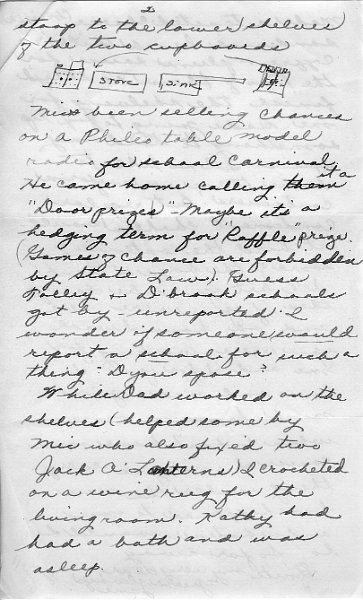 2
stoop to the lower shelves
of the two cupboards
STOVE SINK
Mic's been selling chances
on a Philco table model
radio for school carnival
He came home calling it a
"Door prize" - Maybe it's a
hedging term for "Raffle" prize.
(Games of chance are forbidden
by State Law). Guess
& D'brook schools
got by - unreported. I
wonder if someone would
report a school for such a
thing. D'you spose?
While Dad worked on the
shelves (helped some by
Mic who also fixed two
Jack O' Lanterns) I crocheted
on a wine rug for the
livingroom. Kathy had
had a bath and was
asleep.